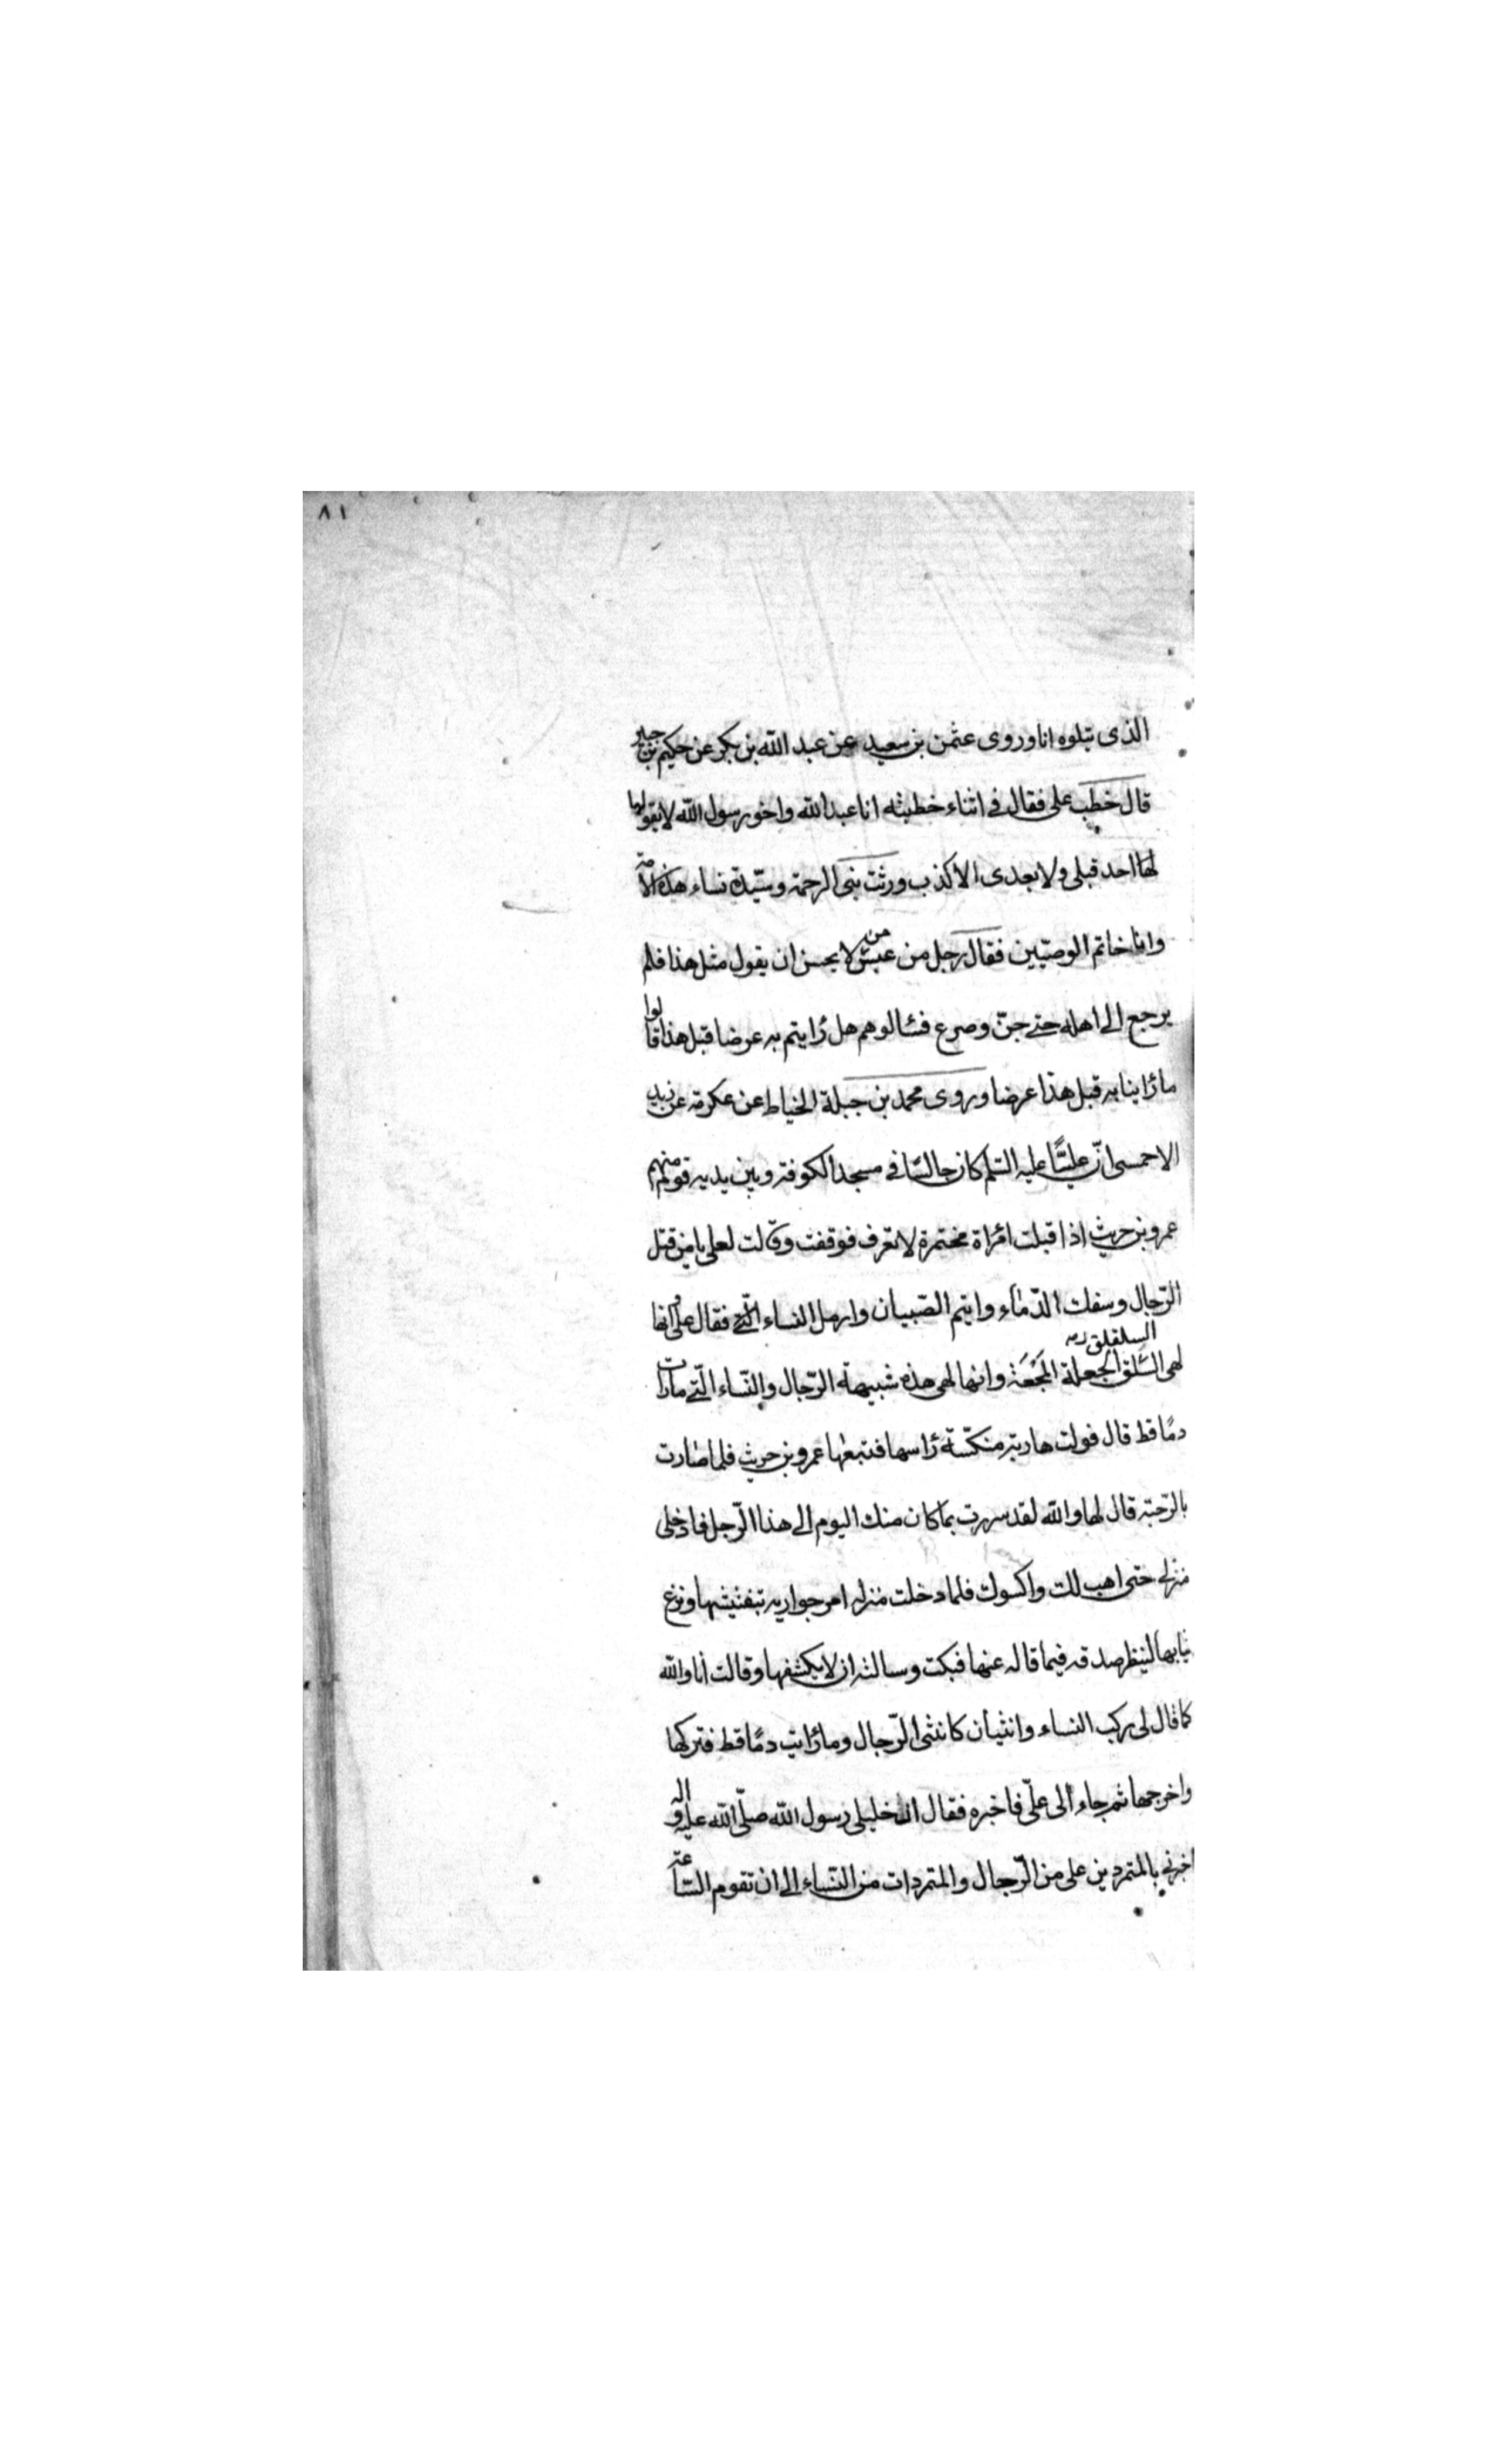 ٨١
الذى يتلوه انا وروى عثمن بن سعيد عن عبد الله بن بكر عن حكيم بن جبير
قال خطب على فقال فى اثناء خطبته انا عبد الله واخو رسول الله لا يقولها
لها احد قبلى ولا بعدى الا كذب ورثت نبى الرحمة وسيّدة نساء هذه الامة
وانا خاتم الوصيّين فقال رجل من عبس من لا يحسن ان يقول مثل هذا فلم
يرجع الى اهله حتى جنّ وصرع فسالوهم هل رأيتم به عرضا قبل هذا قالوا
ما رأينا به قبل هذا عرضا وروى محمد بن جبلة الخياط عن عكرمة عن يزيد
الاحمسى انّ عليّا عليه السّلم كان جالسا فى مسجد الكوفة وبين يديه قوم منهم
عمرو بن حريث اذ اقبلت امرأة مختمرة لا تعرف فوقفت وقالت لعلى يا من قتل
الرّجال وسفك الدّماء وايتم الصّبيان وارمل النساء فقال على وانها
السلقلق
لهى السّلق الجلعة المجعة وانها لهى هذه شبيهة الرّجال والنّساء الّتى ما رات
دمًا قط قال فولت هاربة منكّسة رأسها فتبعها عمرو بن حريث فلما صارت
بالرّحبة قال لها والله لقد سررت بما كان منك اليوم الى هذا الرّجل فادخلى
منزلى حتى اهب لك واكسوك فلما دخلت منزله امر جواريه بتفتيشها ونزع
ثيابها لينظر صدقه فيما قاله عنها فبكت وسالته ان لا يكشفها وقالت انا والله
كما قال لى ركب النساء وانثيان كانثى الرّجال وما رأيت دمًا قط فتركها
واخرجها ثم جاء الى علىّ فاخبره فقال ان خليلى رسول الله صلّى الله عليه واله
اخبرنى بالمتمردين على من الرّجال والمتمردات من النّساء الى ان تقوم السّاعة